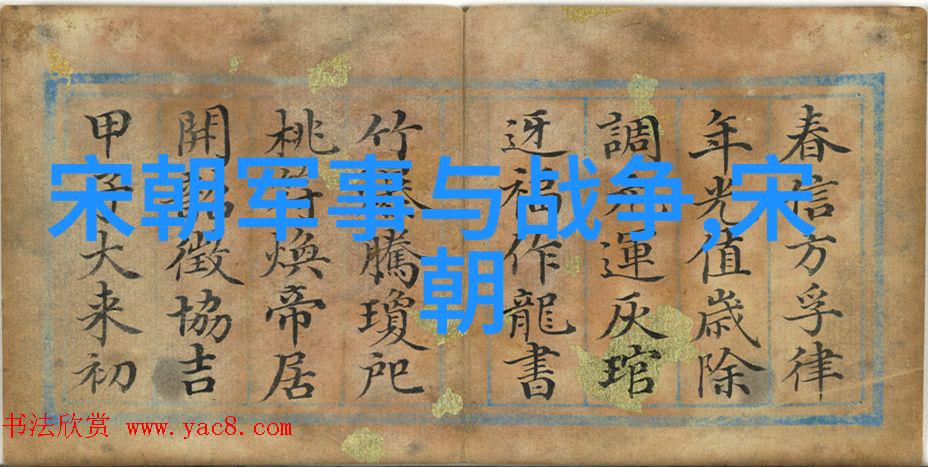 宋朝军事与战争,宋
朝
春信方孚律
年光值歲除
調元運灰琯
迓福作龍書
竹騰瓊卮
桃符煥帝居
開徵協吉
甲子大来初
书法欣赏 www.yac8.com